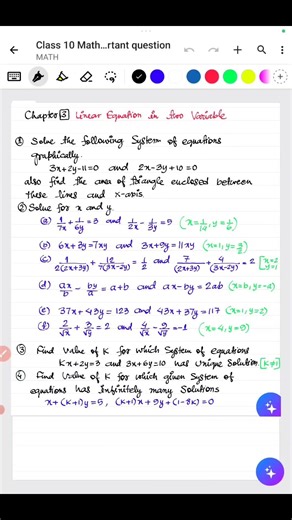 Class 10 Math...rtant question
MATH
Chapter 3 Linear Equation in two Variable
① Solve the following System of equations
graphically.
3x+2y-11=0 and 2x-3y+10=0
also find the area of triangle enclosed between
these lines and x-axis.
② Solve for x and y.
(a) 1/7x + 1/6y = 3 and 1/2x - 1/3y = 5 (x=1/14, y=1/6)
(b) 6x+3y=7xy and 3x+9y=11xy (x=1, y=3/2)
(c) 1/2(2x+3y) + 12/7(3x-2y) = 1/2 and 7/(2x+3y) + 4/(3x-2y) = 2 [x=2 y=1
(d) ax/b - by/a = a+b and ax-by=2ab (x=b, y=-a)
(e) 37x+43y=123 and 43x+37y=117 (x=1, y=2)
(f) 2/√x + 3/√y = 2 and 4/√x - 9/√y = -1 (x=4, y=9)
③ Find value of K for which System of equations
Kx+2y=3 and 3x+6y=10 has Unique Solution [K≠1]
④ Find Value of K for which given System of
equations has Infinitely many Solutions
x+(K+1)y=5, (K+1)x+9y+(1-8K)=0